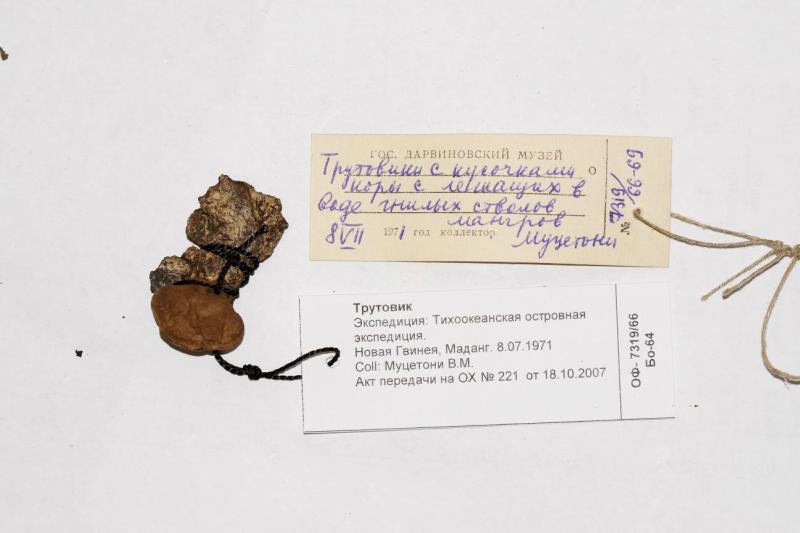 ГОС. ДАРВИНОВСКИЙ МУЗЕЙ
Трутовики с кусочками
коры с лежащих в
воде гнилых стволов
мангров
8 VII 1971 год коллектор Муцетони
№ 7319/66-69
Трутовик
Экспедиция: Тихоокеанская островная
экспедиция.
Новая Гвинея, Маданг. 8.07.1971
Coll: Муцетони В.М.
Акт передачи на ОХ № 221 от 18.10.2007
ОФ- 7319/66
Бо-64